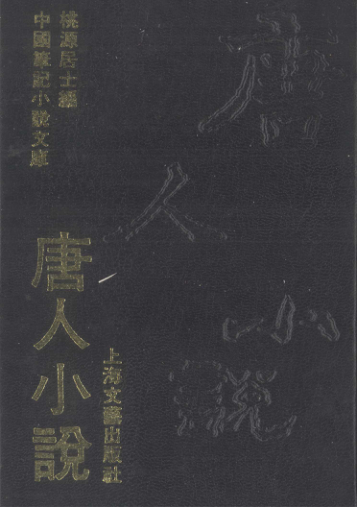 桃源居士編
中國筆記小說文庫
唐人小說
上海文藝出版社
唐人小說